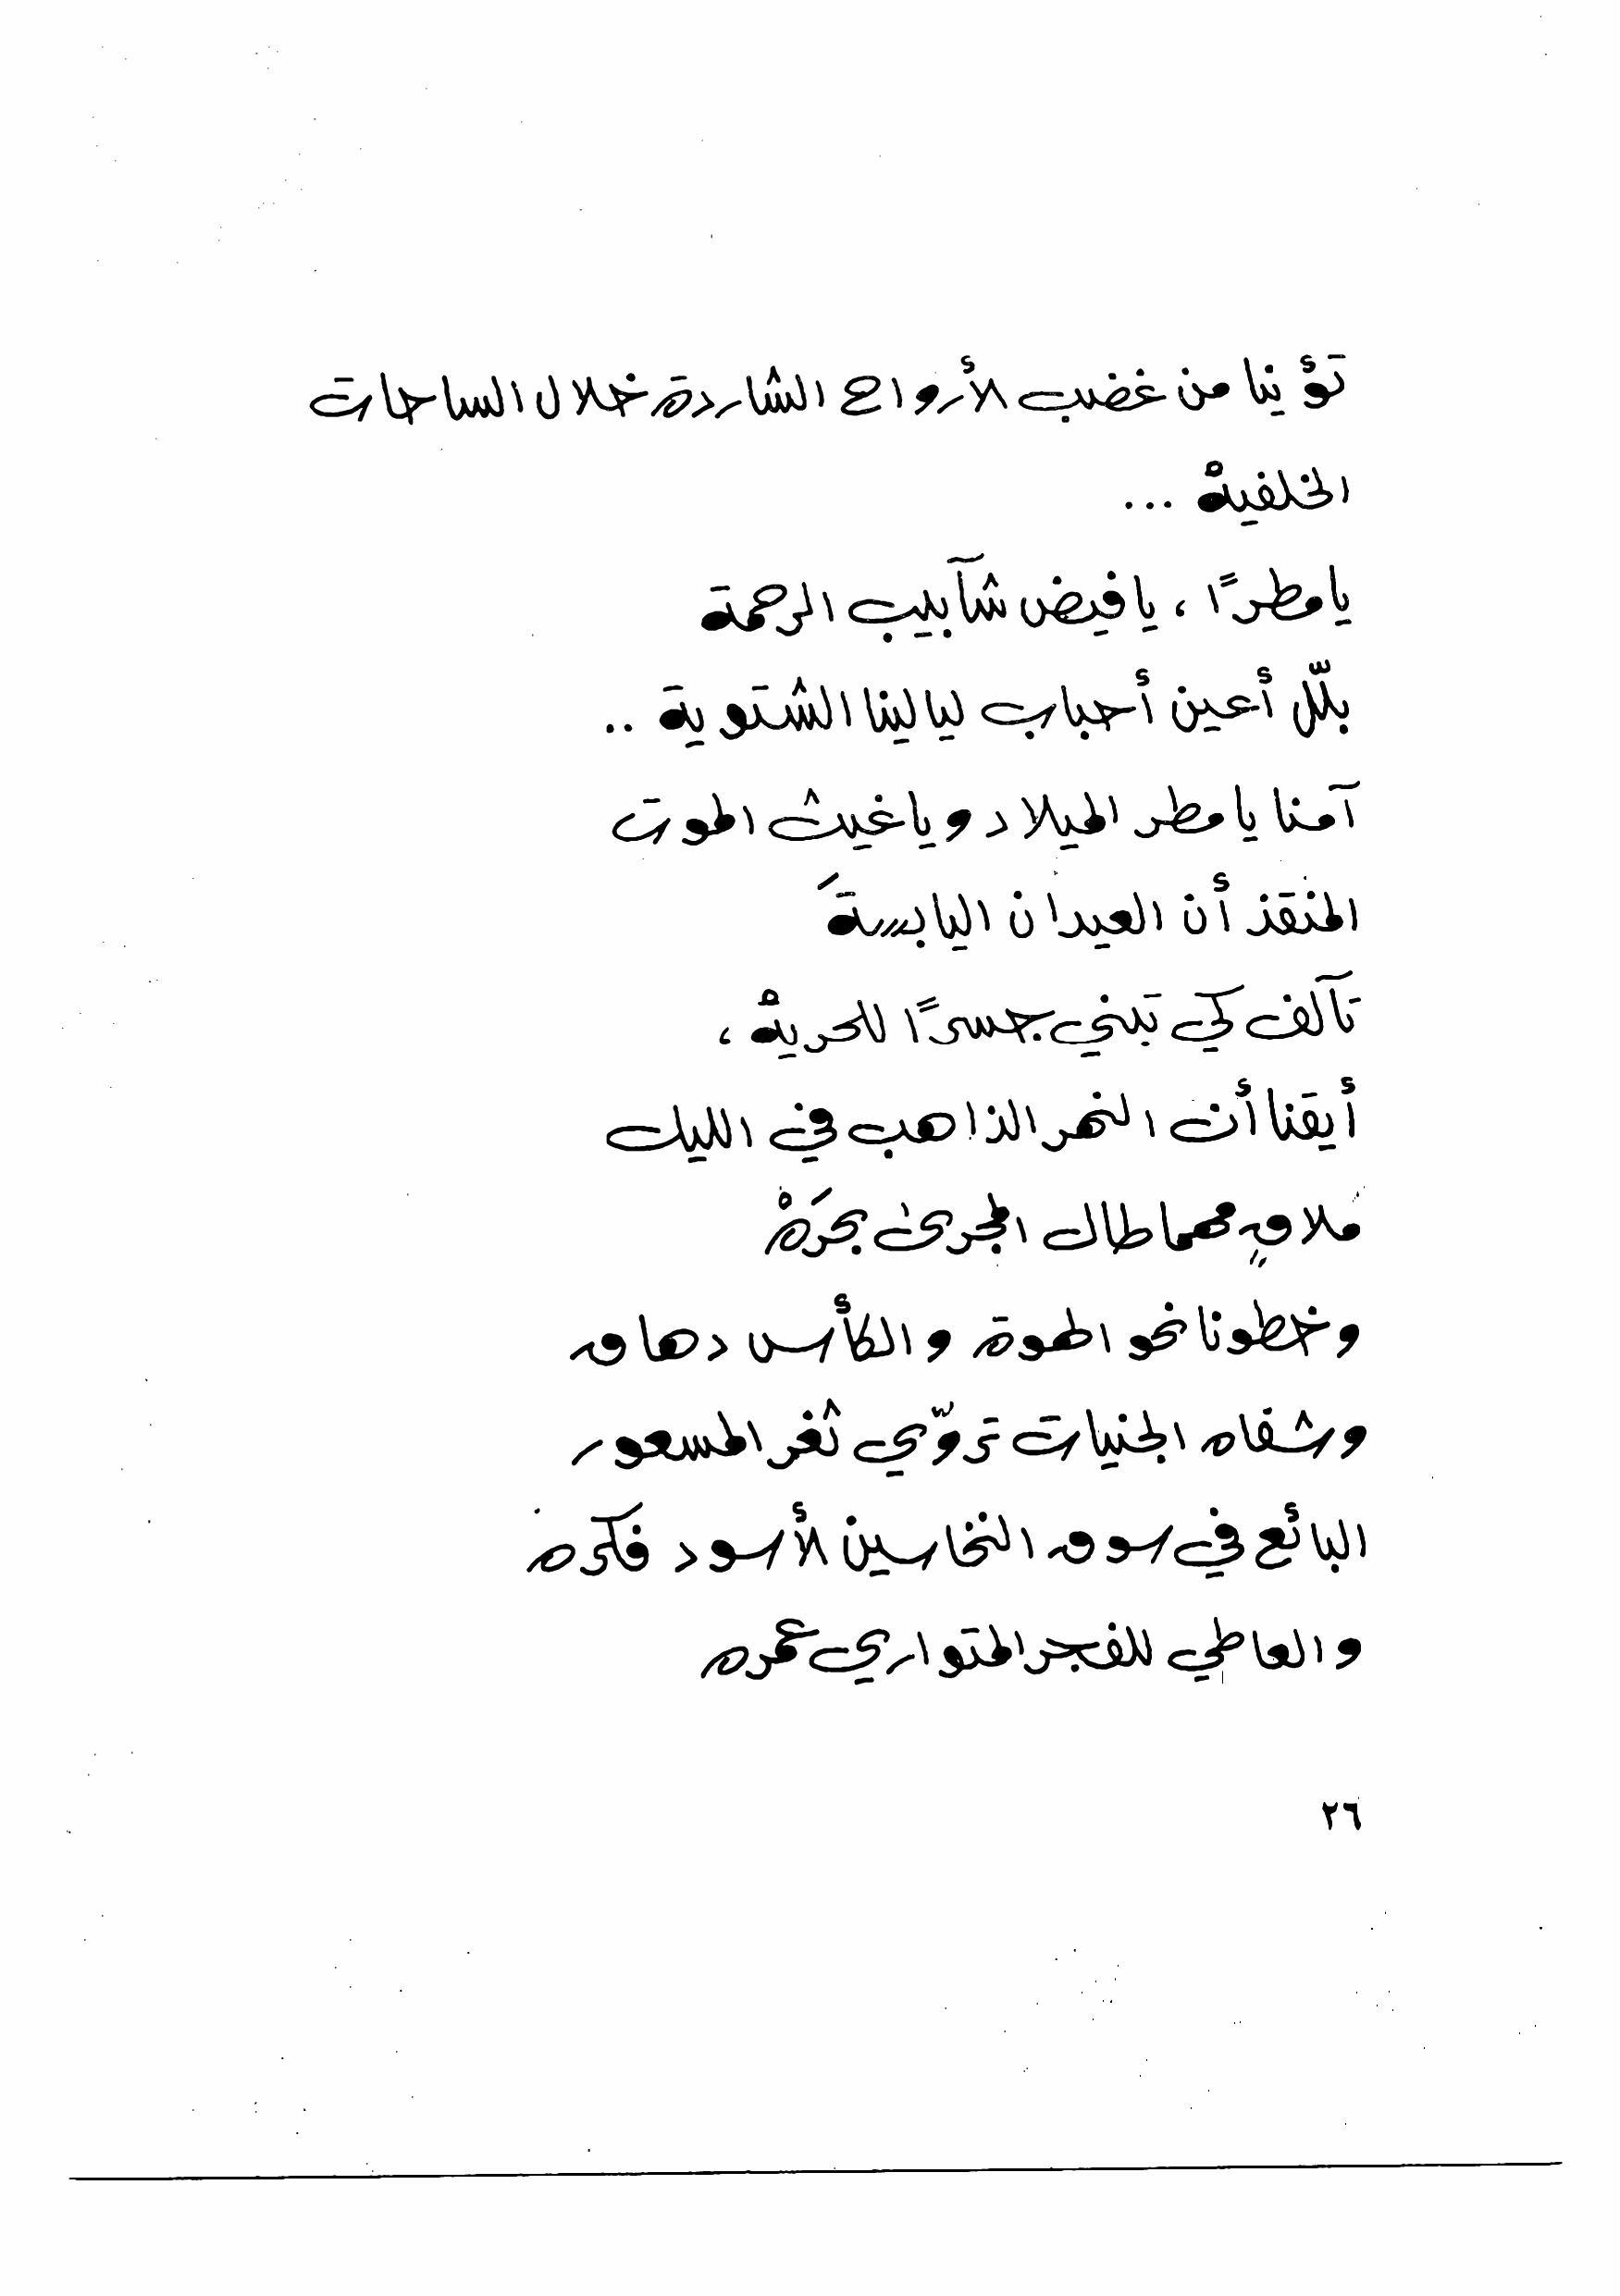 تؤينا من غضب الأرواح الشاردة خلال الساحات
الخلفيةْ ...
يا مطرًا ، يا فيض شآبيب الرحمة
بلّل أعين أحباب ليالينا الشتوية ..
آمنا يا مطر الميلاد ويا غيث الموت
المنقذ أن العيدان اليابسةَ
تآلف كي تبني جسرًا للحريةْ ،
أيقنا أن النهر الذاهب في الليل
ملاقٍ مهما طال المجرى بحرَهْ
وخطونا نحو الهوة والكأس دهاق
وشفاه الجنيات تروّي ثغر المسعور
البائع في سوق النخاسين الأسود فكره
والعاطي للفجر المتواري عمره
٢٦